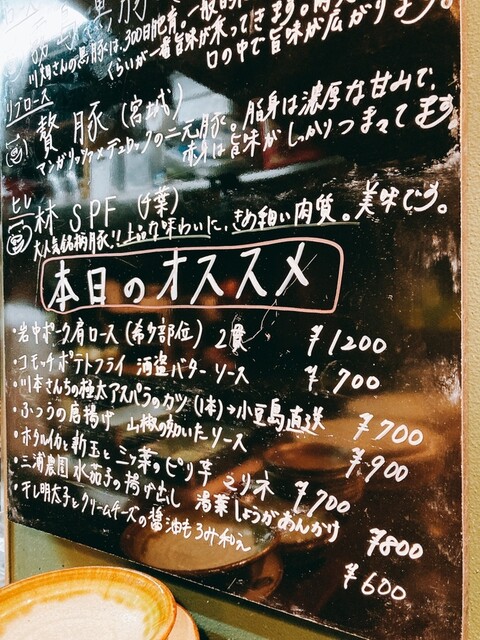 川畑さんの黒豚は、300日肥育。一般的
くらいが一番旨味が乗ってきます。
口の中で旨味が広がります。
リブロース
贅豚(宮城)
マンガリッツァ×デュロックの二元豚。脂身は濃厚な甘みで、
赤身は旨味がしっかりつまってます。
ヒレ
林SPF(千葉)
大人気銘柄豚!!上品な味わいに、きめ細い肉質。美味です。
本日のオススメ
・岩中ポーク肩ロース(希少部位) 2貫 ¥1200
・コモッチポテトフライ 酒盗バターソース ¥700
・川本さんちの極太アスパラのカツ(1本)→小豆島直送 ¥700
・ふつうの唐揚げ 山椒の効いたソース ¥900
・ホタルイカと新玉と三ッ葉のピリ辛マリネ ¥700
・三浦農園水茄子の揚げ出し 湯葉しょうがあんかけ ¥800
・干し明太子とクリームチーズの醤油もろみ和え ¥600